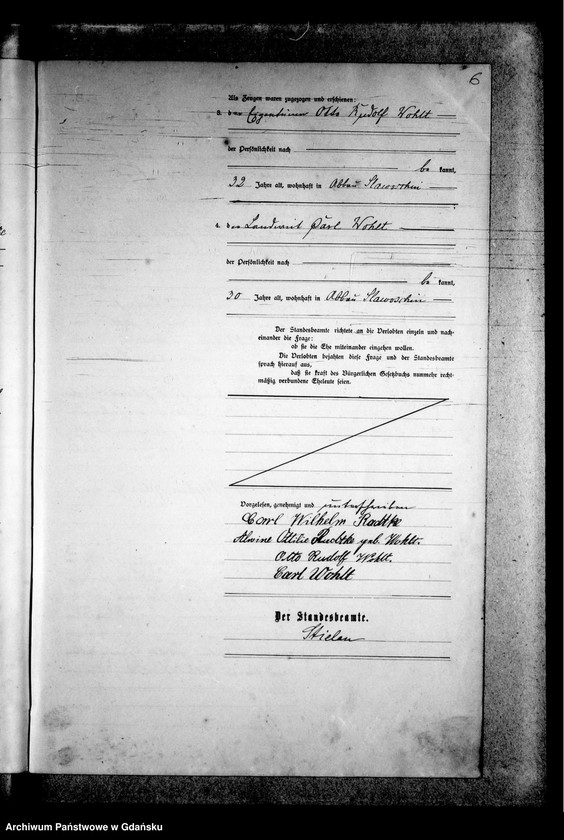 6
Als Zeugen waren zugezogen und erschienen:
3. der Eigentümer Otto Rudolf Wohlt
der Persönlichkeit nach
be kannt,
32 Jahre alt, wohnhaft in Abbau Slawoschin
4. der Landwirt Carl Wohlt
der Persönlichkeit nach
be kannt,
30 Jahre alt, wohnhaft in Abbau Slawoschin
Der Standesbeamte richtete an die Verlobten einzeln und nach-
einander die Frage:
ob sie die Ehe miteinander eingehen wollen.
Die Verlobten bejahten diese Frage und der Standesbeamte
sprach hierauf aus,
daß sie kraft des Bürgerlichen Gesetzbuchs nunmehr recht-
mäßig verbundene Eheleute seien.
Vorgelesen, genehmigt und unterschrieben
Carl Wilhelm Radtke
Alwine Ottilie Radtke geb. Wohlt.
Otto Rudolf Wohlt.
Carl Wohlt
Der Standesbeamte.
Stielau
Archiwum Państwowe w Gdańsku